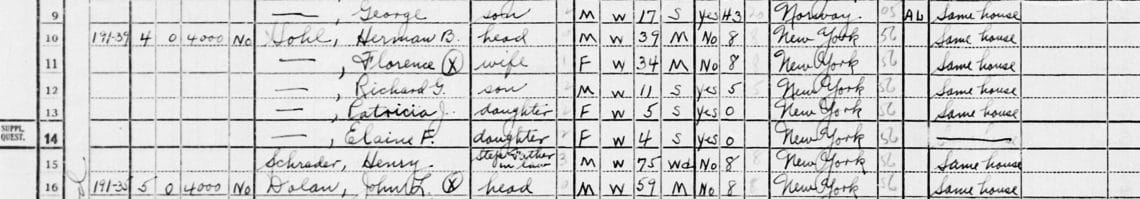 9 — , George son M W 17 S Yes H3 Norway. 05 AL Same house
10 191-39 4 0 4000 No Gohl, Herman B. head M W 39 M No 8 New York 56 Same house
11 — , Florence Ⓧ wife F W 34 M No 8 New York 56 Same house
12 — , Richard G. son M W 11 S Yes 5 New York 56 Same house
13 — , Patricia J. daughter F W 5 S Yes 0 New York 56 Same house
SUPPL. QUEST. 14 — , Elaine F. daughter F W 4 S Yes 0 New York 56 —
15 Schrader, Henry. Step Father in law 3 M W 75 Wd No 8 New York 56 Same house
16 191-35 5 0 4000 No Dolan, John L. Ⓧ head M W 59 M No 8 New York 56 Same house